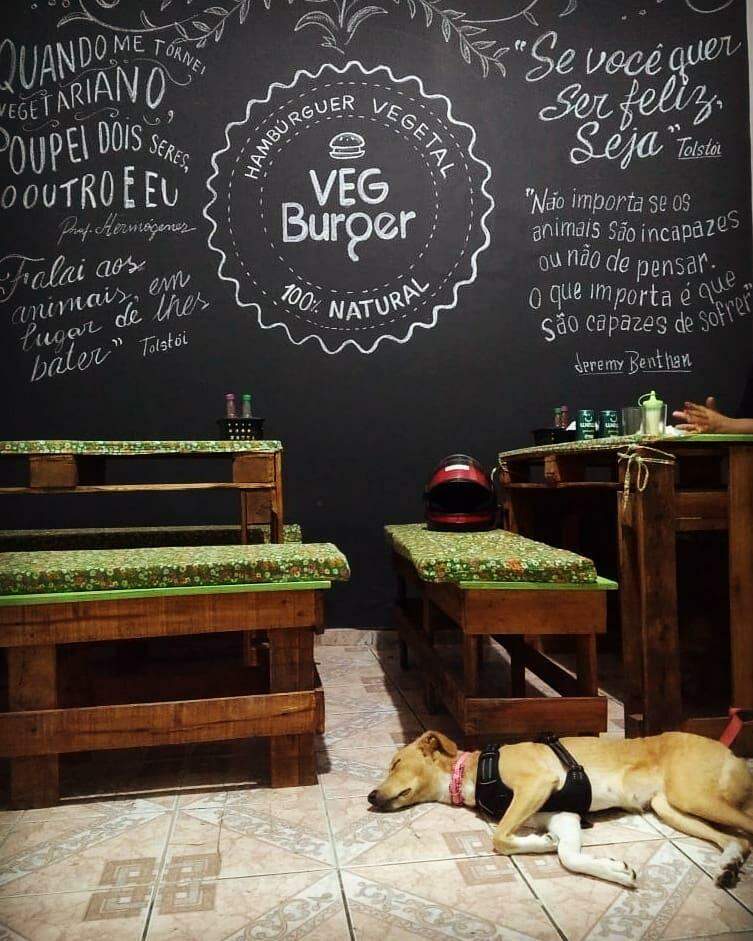 QUANDO ME TORNEI
VEGETARIANO,
POUPEI DOIS SERES,
O OUTRO É EU
Prof. Hermógenes
Falai aos
animais, em
lugar de lhes
bater"
Tolstói
HAMBÚRGUER VEGETAL
VEG
Burger
100% NATURAL
"Se você quer
Ser feliz,
Seja"
Tolstói
"Não importa se os
animais são incapazes
ou não de pensar.
O que importa é que
são capazes de sofrer"
Jeremy Benthan